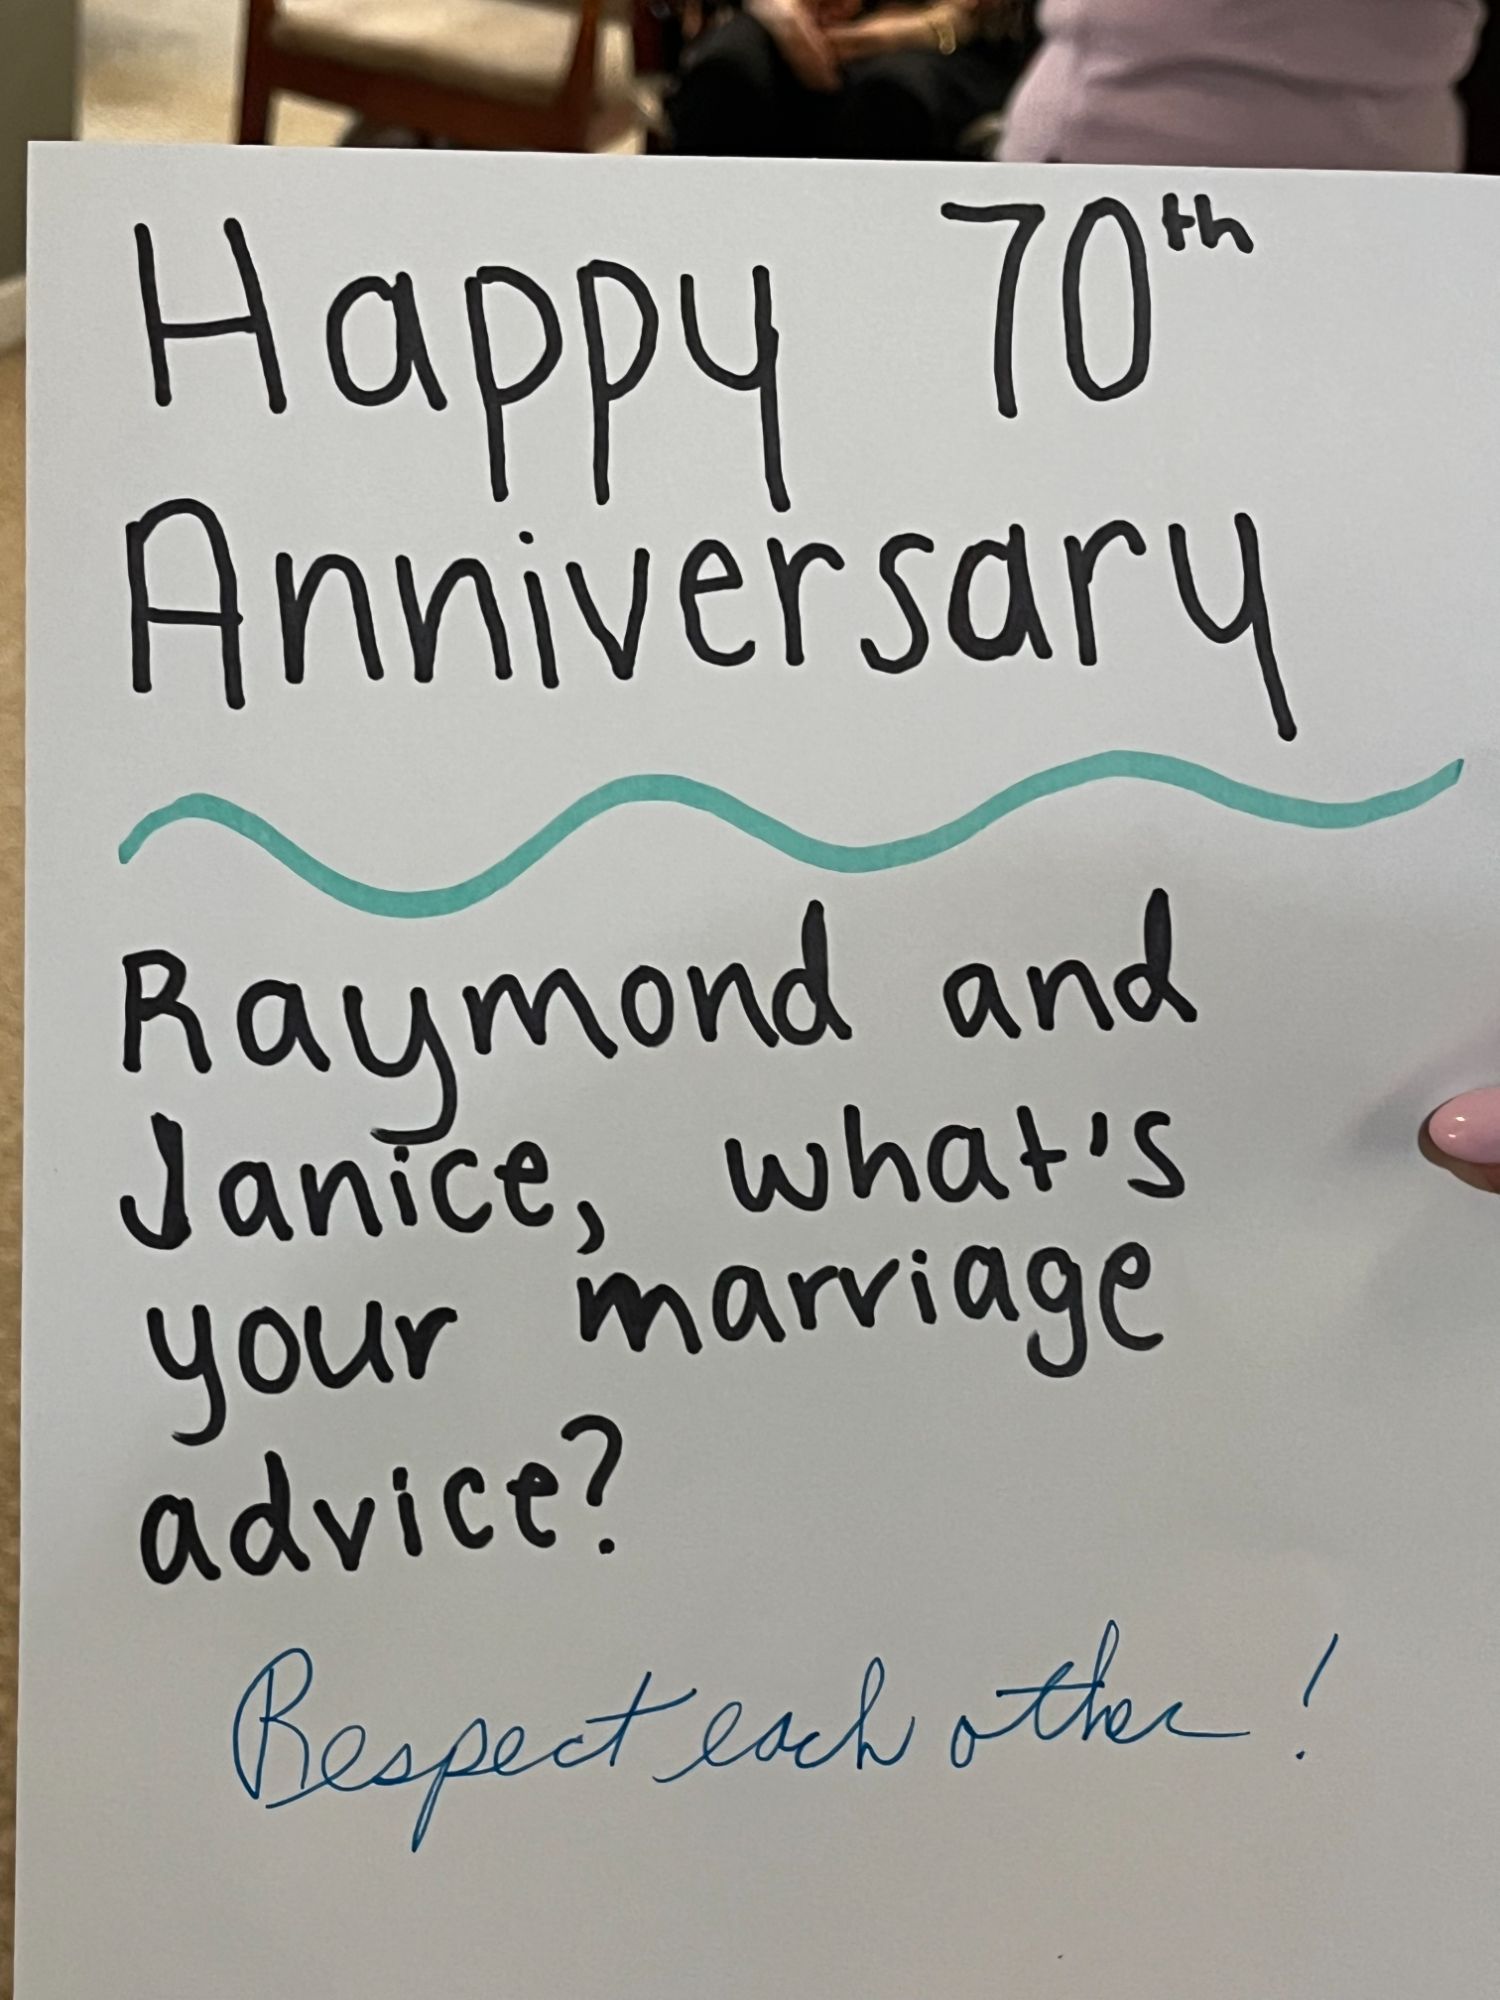 Happy 70th
Anniversary
Raymond and
Janice, what's
your marriage
advice?
Respect each other!